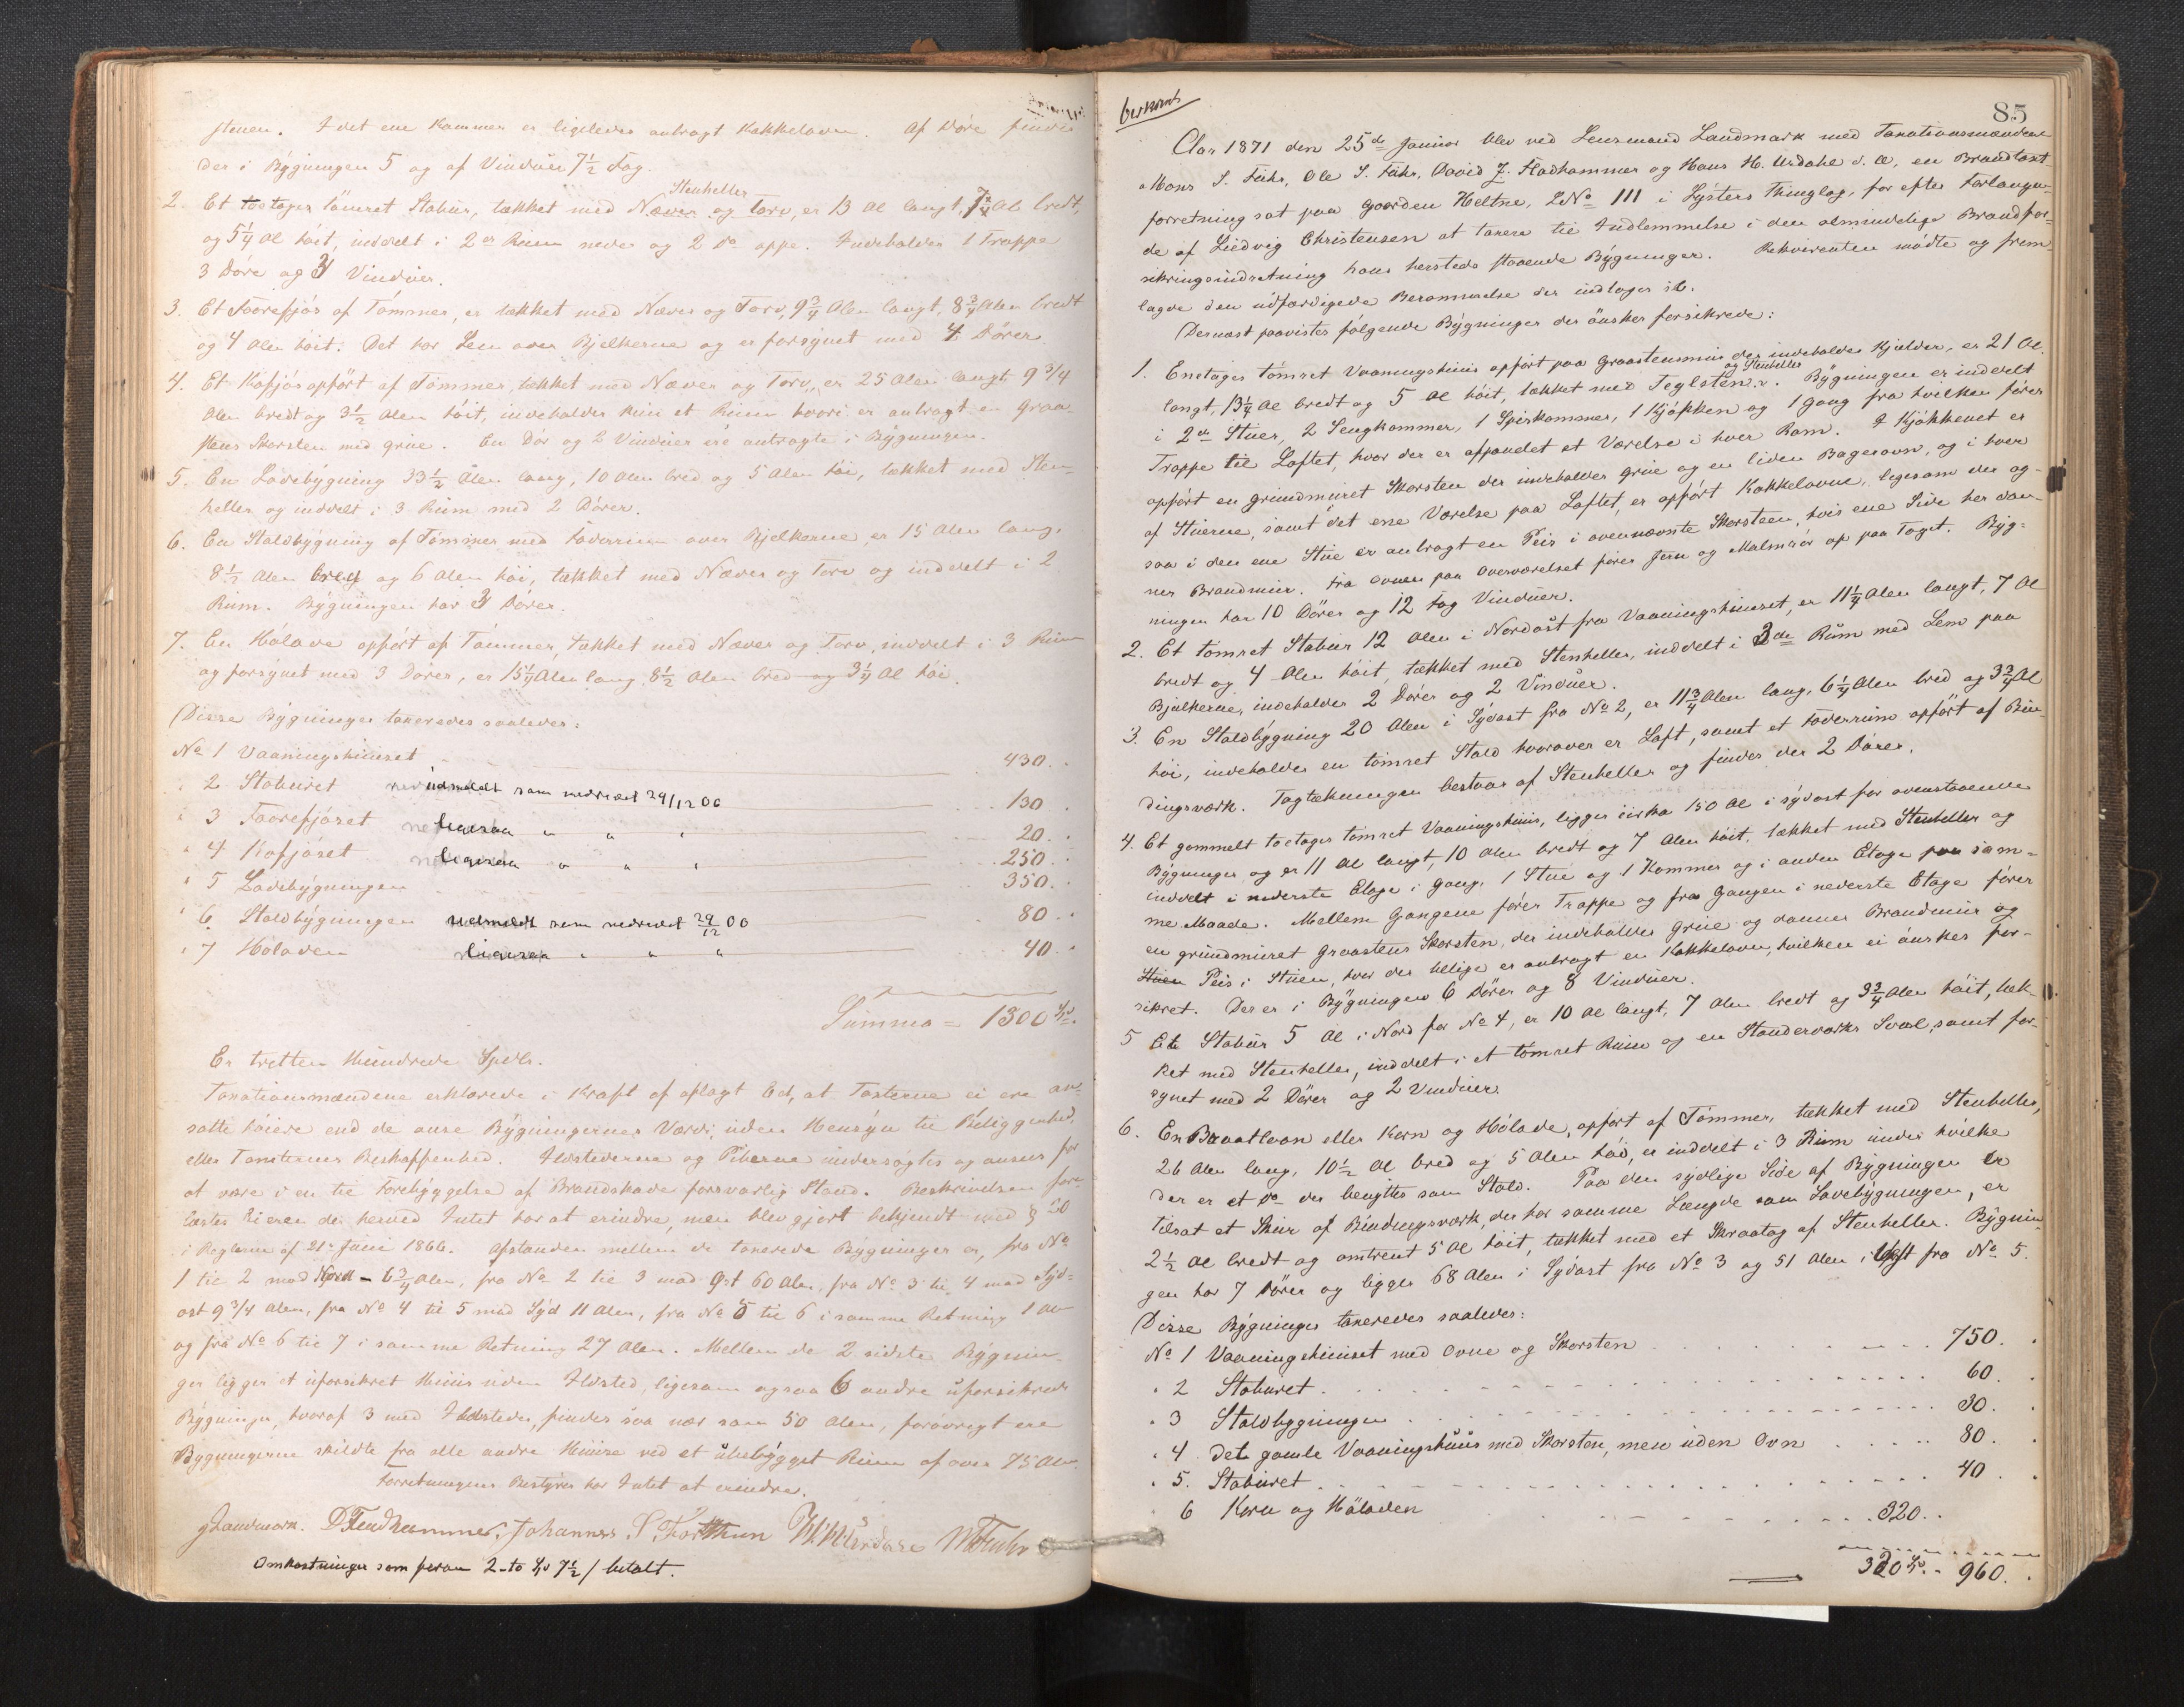 stuen. I det ene Kammer er ligeledes anbragt Kakkelovn. Af Döre findes
der i Bÿgningen 5 og af Vinduer 7½ Fag.
2. Et toetages tömret Stabur, tækket med Næver og Torv, er 13 Al langt, 7¾ Al bredt,
Stenheller
og 5¼ Al höit, inddelt i 2de Rum nede og 2 do oppe. Indeholder 1 Trappe
3 Döre og 3 Vinduer.
3. Et Faarefjös af Tömmer, er tækket med Næver og Torv, 9¾ Alen langt, 8¾ Alen bredt
og 4 Alen höit. Det har Lem over Bjelkerne og er forsÿnet med 4 Dörer
4. Et Kofjös opfört af Tömmer, tækket med Næver og Torv, er 25 Alen langt, 9¾
Alen bredt og 3½ Alen höit, indeholder kun et Rum hvori er anbragt en Graa-
stens Skorsten med Grue. En Dör og 2 Vinduer ere anbragte i Bÿgningen.
5. En Ladebÿgning 33½ Alen lang, 10 Alen bred og 5 Alen höi, tækket med Sten-
heller og inddelt i 3 Rum med 2 Dörer.
6. En Staldbÿgning af Tömmer med Foderrum over Bjelkerne er 15 Alen lang,
8½ Alen bred og 6 Alen höi, tækket med Næver og Torv og inddelt i 2
Rum. Bÿgningen har 3 Dörer.
7. En Hölade opfört af Tömmer, tækket med Næver og Torv, inddelt i 3 Rum
og forsÿnet med 3 Dörer, er 15¼ Alen lang 8½ Alen bred og 3¼ Al höi.
Disse Bÿgninger taxeredes saaledes:
No 1 Vaaningshuset 430.
" 2 Staburet udmeldt som nedrevet 29/12 00 130.
" 3 Faarefjöset ligesaa " " " 20.
" 4 Kofjöset ligesaa " " " 250.
" 5 Ladebÿgningen 350.
" 6 Staldbÿgningen udmeldt som nedrevet 29/12 00 80.
" 7 Höladen ligesaa " " " 40.
Summa = 1300 Spd.
Er tretten Hundrede Spdlr.
Taxationsmændene erklærede i Kraft af aflagt Ed, at Taxterne ei ere an-
satte höiere end de anse Bÿgningernes Værdi, uden Hensÿn til Beliggenhed,
eller Tomternes Beskaffenhed. Ildstederne og Piberne undersögtes og ansees for
at være i en til Forebÿggelse af Brandskade forsvarlig Stand. Beskrivelsen fore-
læstes Eieren der herved Intet har at erindre, men blev gjort bekjendt med § 20
i Reglerne af 21de Juni 1866. Afstanden mellem de taxerede Bÿgninger er, fra No
1 til 2 mod Nord - 6¾ Alen, fra No 2 til 3 mod Öst 60 Alen, fra No 3 til 4 mod Sÿd-
ost 9¾ Alen, fra No 4 til 5 mod Sÿd 11 Alen, fra No 5 til 6 i samme Retning 1 Al
og fra No 6 til 7 i samme Retning 27 Alen. Mellem de 2 sidste Bÿgnin-
ger ligger et uforsikret Huus uden Ildsted, ligesom ogsaa 6 andre uforsikrede
Bÿgninger, hvoraf 3 med Ildsteder, findes saa nær som 50 Alen, forövrigt ere
Bygningerne skildte fra alle andre Huuse ved et ubebÿgget Rum af over 75 Alen.
Forretningens Bestÿrer har Intet at erindre.
Landmark. D Fladhammer, Johannes S. Forthun
Omkostninger som foran 2-to Spd 7½ / betalt.
85
Aar 1871 den 25de Januar blev ved Lensmand Landmark med Taxationsmændene
Mons S. Fuhr, Ole S. Fuhr, David J. Fladhammer og Hans H. Urdahl d. æ, en Brandtaxt-
forretning sat paa Gaarden Heltne, LNo 111 i Lÿsters Thinglag, for efter Forlangen-
de af Ludvig Christensen at taxere til Indlemmelse i den almindelige Brandfor-
sikringsindretning hans hersteds staaende Bÿgninger. Rekvirenten mödte og frem-
lagde den udfærdigede Berammelse der indtages sl.
Dernæst paavistes fölgende Bÿgninger der önskes forsikrede:
1. Enetages tömret Vaaningshuus opfört paa Graastensmuur der indeholder Kjelder, er 21 Al
og Stenheller
langt, 13¼ Al bredt og 5 Al höit, tækket med Teglsten. Bÿgningen er inddelt
i 2de Stuer, 2 Sengkammer, 1 Spiskammer, 1 Kjökken og 1 Gang fra hvilken förer
Trappe til Loftet, hvor der er afpanelet et Værelse i hver Ram. I Kjökkenet er
opfört en grundmuret Skorsten der indeholder Grue og en liden Bagerovn, og i hver
af Stuerne, samt det ene Værelse paa Loftet, er opfört Kakkelovne, ligesom der og-
saa i den ene Stue er anbragt en Peis i ovennævnte Skorsteen, hvis ene Side her dan-
ner Brandmur. Fra Ovnen paa Overværelset förer Jern og Malmrör op paa Taget. Bÿg-
ningen har 10 Dörer og 12 Fag Vinduer.
2. Et tömret Stabur 12 Alen i Nordöst fra Vaaningshuuset, er 11¼ Alen langt, 7 Al
bredt og 4 Alen höit, tækket med Stenheller, inddelt i 3de Rum med Lem paa
Bjelkerne, indeholder 2 Dörer og 2 Vinduer.
3. En Staldbÿgning 20 Alen i Sÿdost fra No 2, er 11¾ Alen lang, 6¼ Alen bred og 3¾ Al
höi, indeholder en tömret Stald hvorover er Loft, samt et Foderrum opfört af Bin-
dingsværk. Tagtækningen bestaar af Stenheller og findes der 2 Dörer.
4. Et gammelt toetages tömret Vaaningshuus, ligger cirka 150 Al i sÿdost for ovenstaaende
Bÿgninger og er 11 Al langt, 10 Alen bredt og 7 Alen höit, tækket med Stenheller og
inddelt i nederste Etage i Gang, 1 Stue og 1 Kammer og i anden Etage paa sam-
me Maade. Mellem Gangene förer Trappe og fra Gangen i nederste Etage förer
en grundmuret Graastens Skorsten, der indeholder Grue og danner Brandmur og
Stuen Peis i Stuen, hvor der tillige er anbragt en Kakkelovn, hvilken ei önskes for-
sikret. Der er i Bÿgningen 6 Dörer og 8 Vinduer.
5 Et Stabur 5 Al i Nord for No 4, er 10 Al langt, 7 Alen bredt og 3¾ Alen höit, tæk-
ket med Stenheller, inddelt i et tömret Rum og en Standerværks Sval, samt for-
synet med 2 Dörer og 2 Vinduer.
6. En Braatloon eller Korn og Hölade, opfört af Tömmer, tækket med Stenheller,
26 Alen lang, 10½ Al bred og 5 Alen höi, er inddelt i 3 Rum under hvilke
der er et do der benyttes som Stald. Paa den sydlige Side af Bÿgningen er
tilsat et Skur af Bindingsværk, der har samme Længde som Ladebÿgningen, er
2½ Al bredt og omtrent 5 Al höit, tækket med et Skraatag af Stenheller. Bÿgnin-
gen har 7 Dörer og ligger 68 Alen i Sydost fra No 3 og 51 Alen i Vest fra No 5.
Disse Bÿgninger taxeredes saaledes:
No 1 Vaaningshuuset med Ovne og Skorsten 750.
" 2 Staburet 60.
" 3 Staldbygningen 30.
" 4 det gamle Vaaningshuus med Skorsten, men uden Ovn 80.
" 5. Staburet 40.
6 Korn og Höladen 320.
320 Spd. - 960.